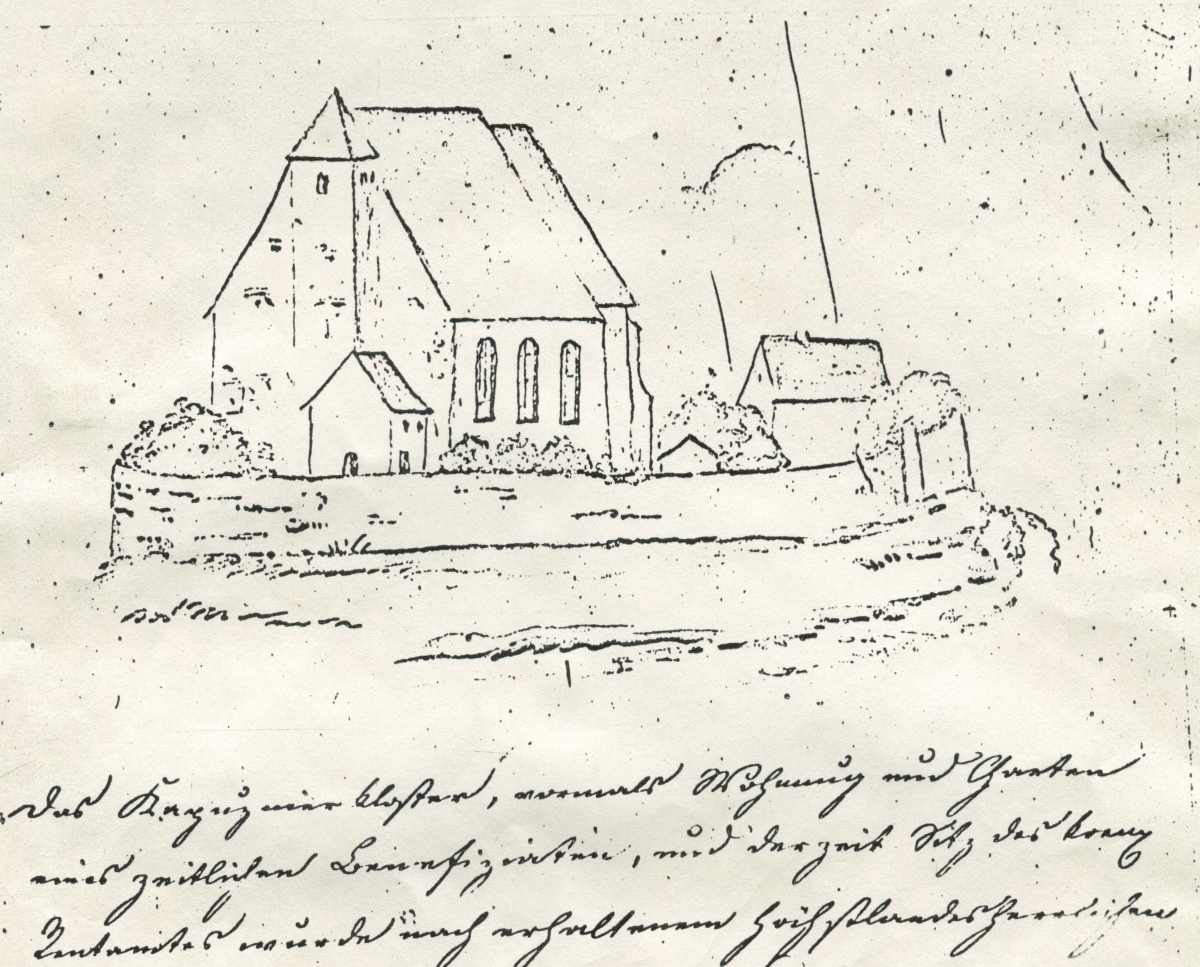 Das Kapuzinerkloster, vormals Wohnung und Garten
eines zeitlichen Benefiziaten, und derzeit Sitz des königl
Rentamtes wurde nach erhaltenem höchstlandesherrlichen